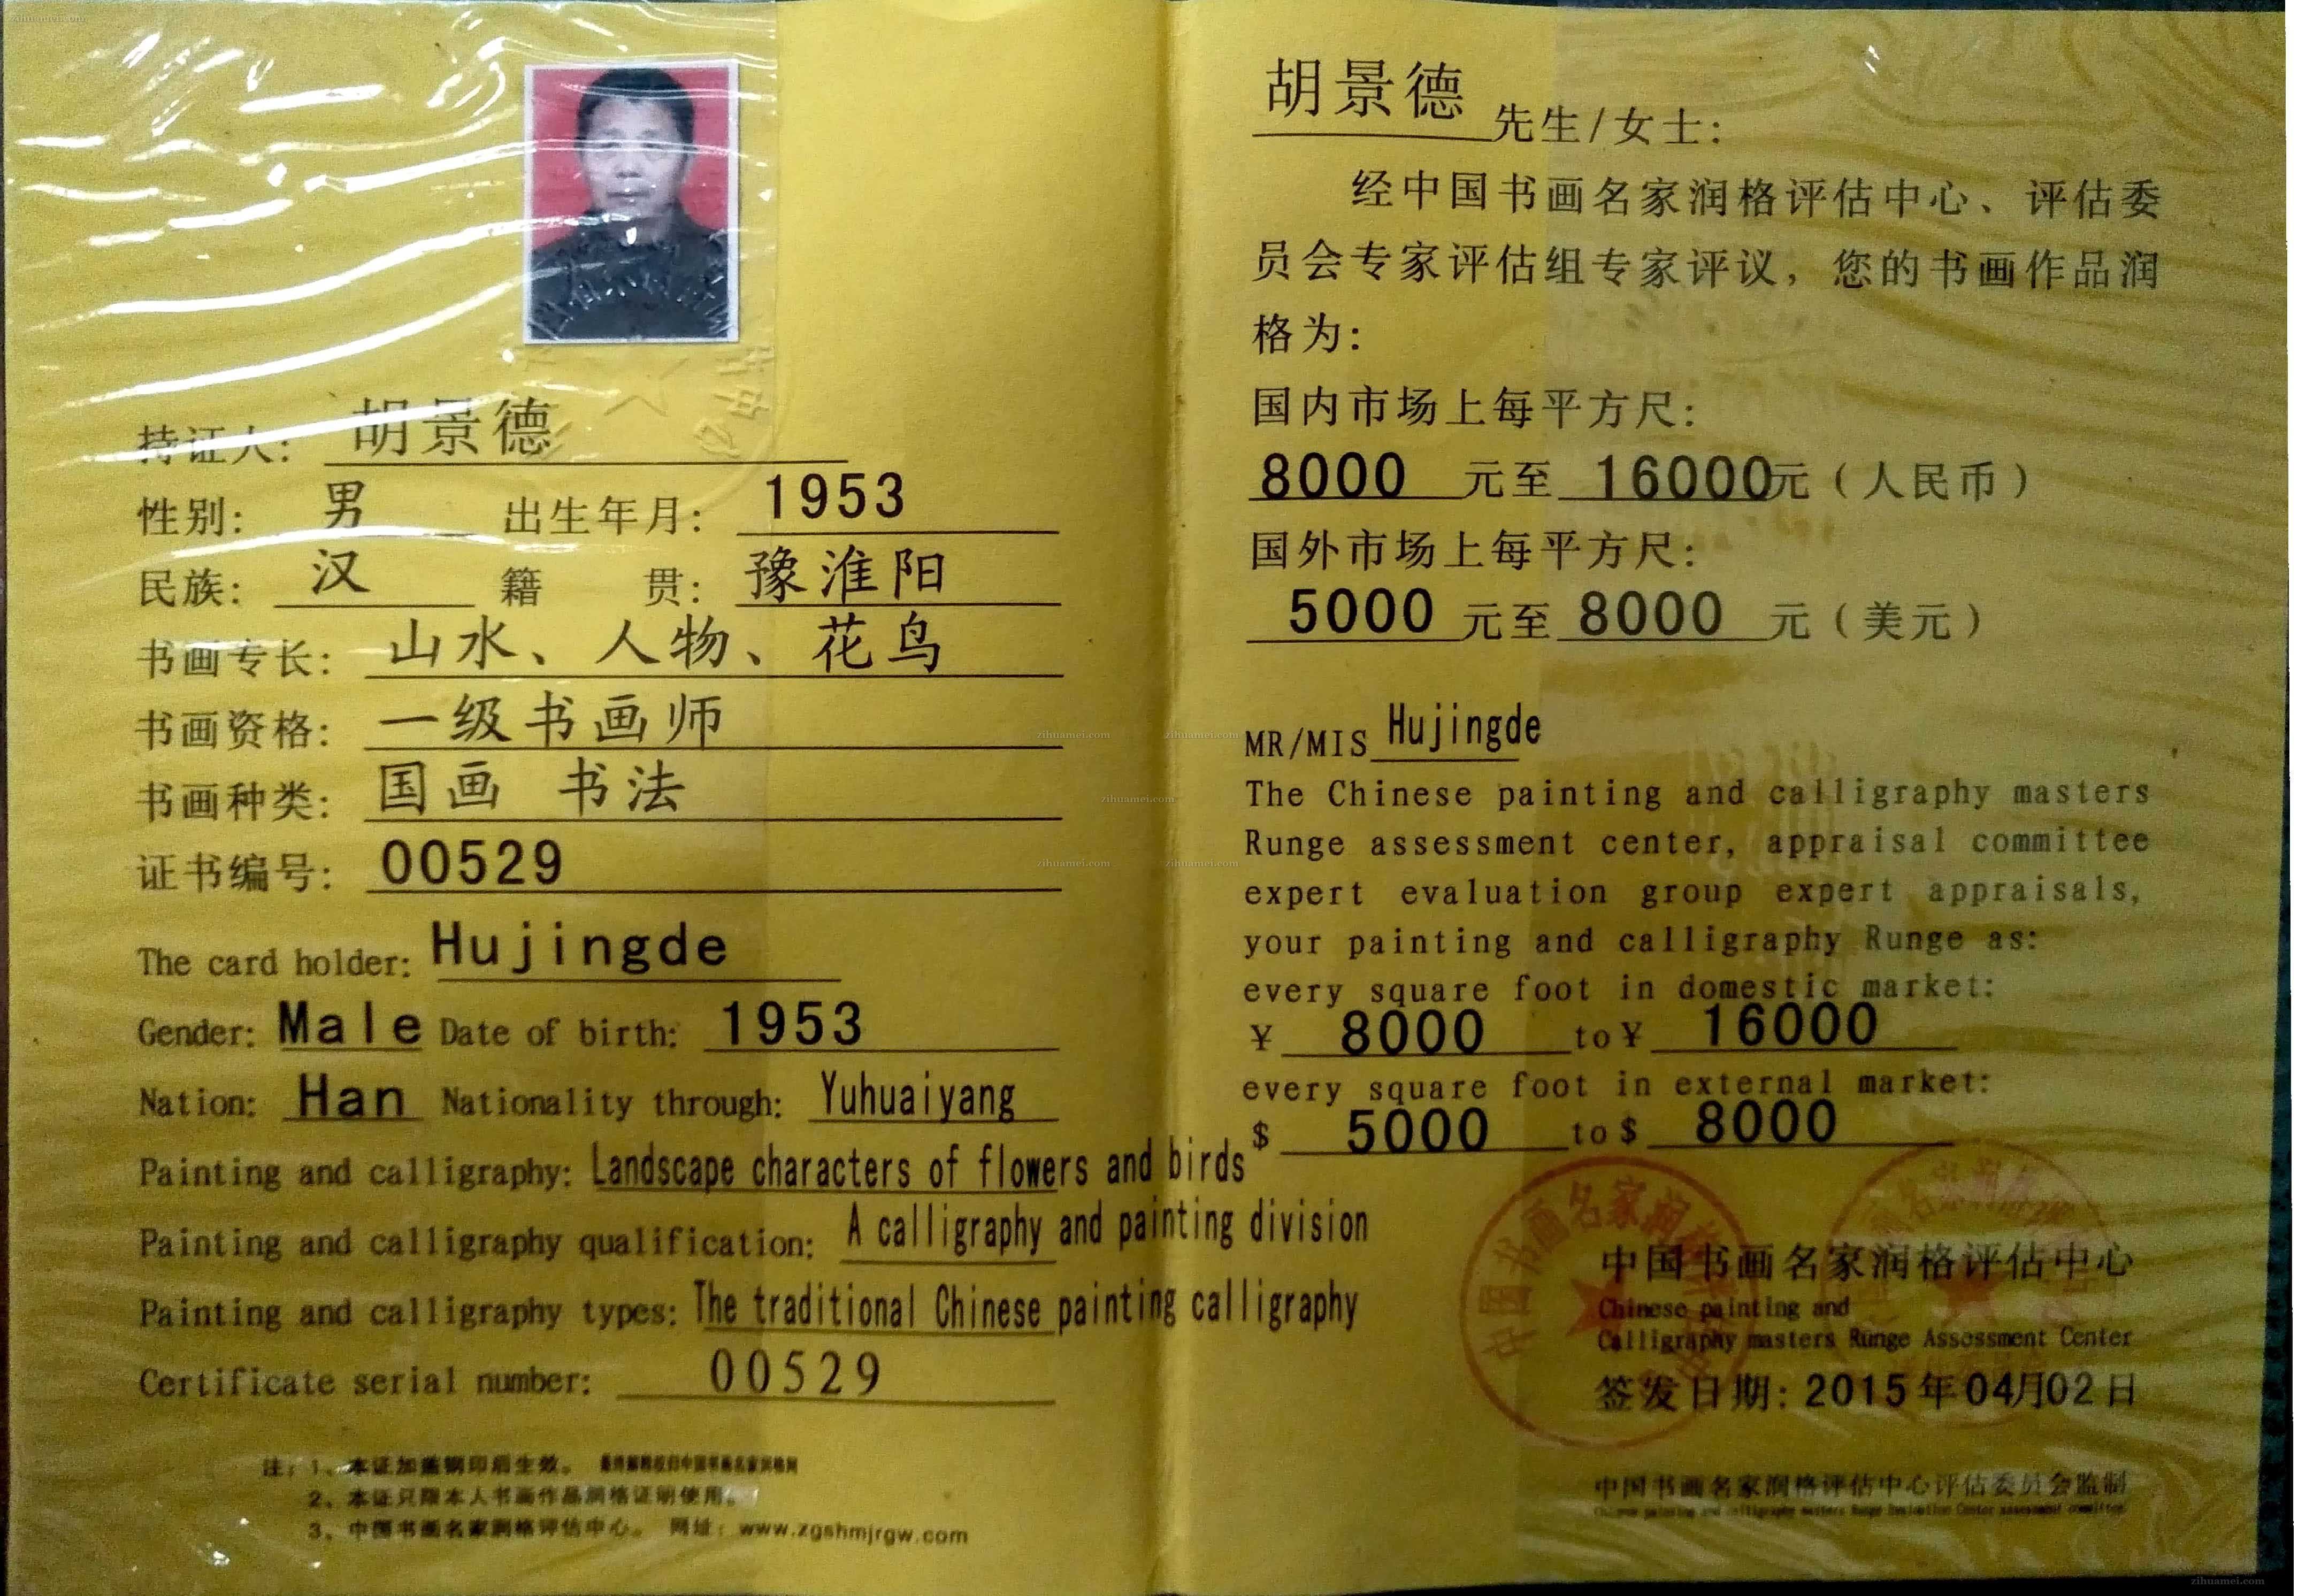 胡景德
持证人: 胡景德
性别: 男 出生年月: 1953
民族: 汉 籍 贯: 豫淮阳
书画专长: 山水、人物、花鸟
书画资格: 一级书画师
书画种类: 国画 书法
证书编号: 00529
The card holder: Hujingde
Gender: Male Date of birth: 1953
Nation: Han Nationality through: Yuhuaiyang
Painting and calligraphy: Landscape characters of flowers and birds
Painting and calligraphy qualification: A calligraphy and painting division
Painting and calligraphy types: The traditional Chinese painting calligraphy
Certificate serial number: 00529
注: 1、本证加盖钢印后生效。
2、本证只限本人书画作品润格证明使用。
3、中国书画名家润格评估中心。 网址: www.zgshmjrgw.com
胡景德 先生/女士:
经中国书画名家润格评估中心、评估委
员会专家评估组专家评议, 您的书画作品润
格为:
国内市场上每平方尺:
8000 元至 16000元(人民币)
国外市场上每平方尺:
5000 元至 8000 元(美元)
MR/MIS Hujingde
The Chinese painting and calligraphy masters
Runge assessment center, appraisal committee
expert evaluation group expert appraisals,
your painting and calligraphy Runge as:
every square foot in domestic market:
¥ 8000 to ¥ 16000
every square foot in external market:
$ 5000 to $ 8000
中国书画名家润格评估中心
Chinese painting and
Calligraphy masters Runge Assessment Center
签发日期: 2015年04月02日
中国书画名家润格评估中心评估委员会监制
zihuamei.com